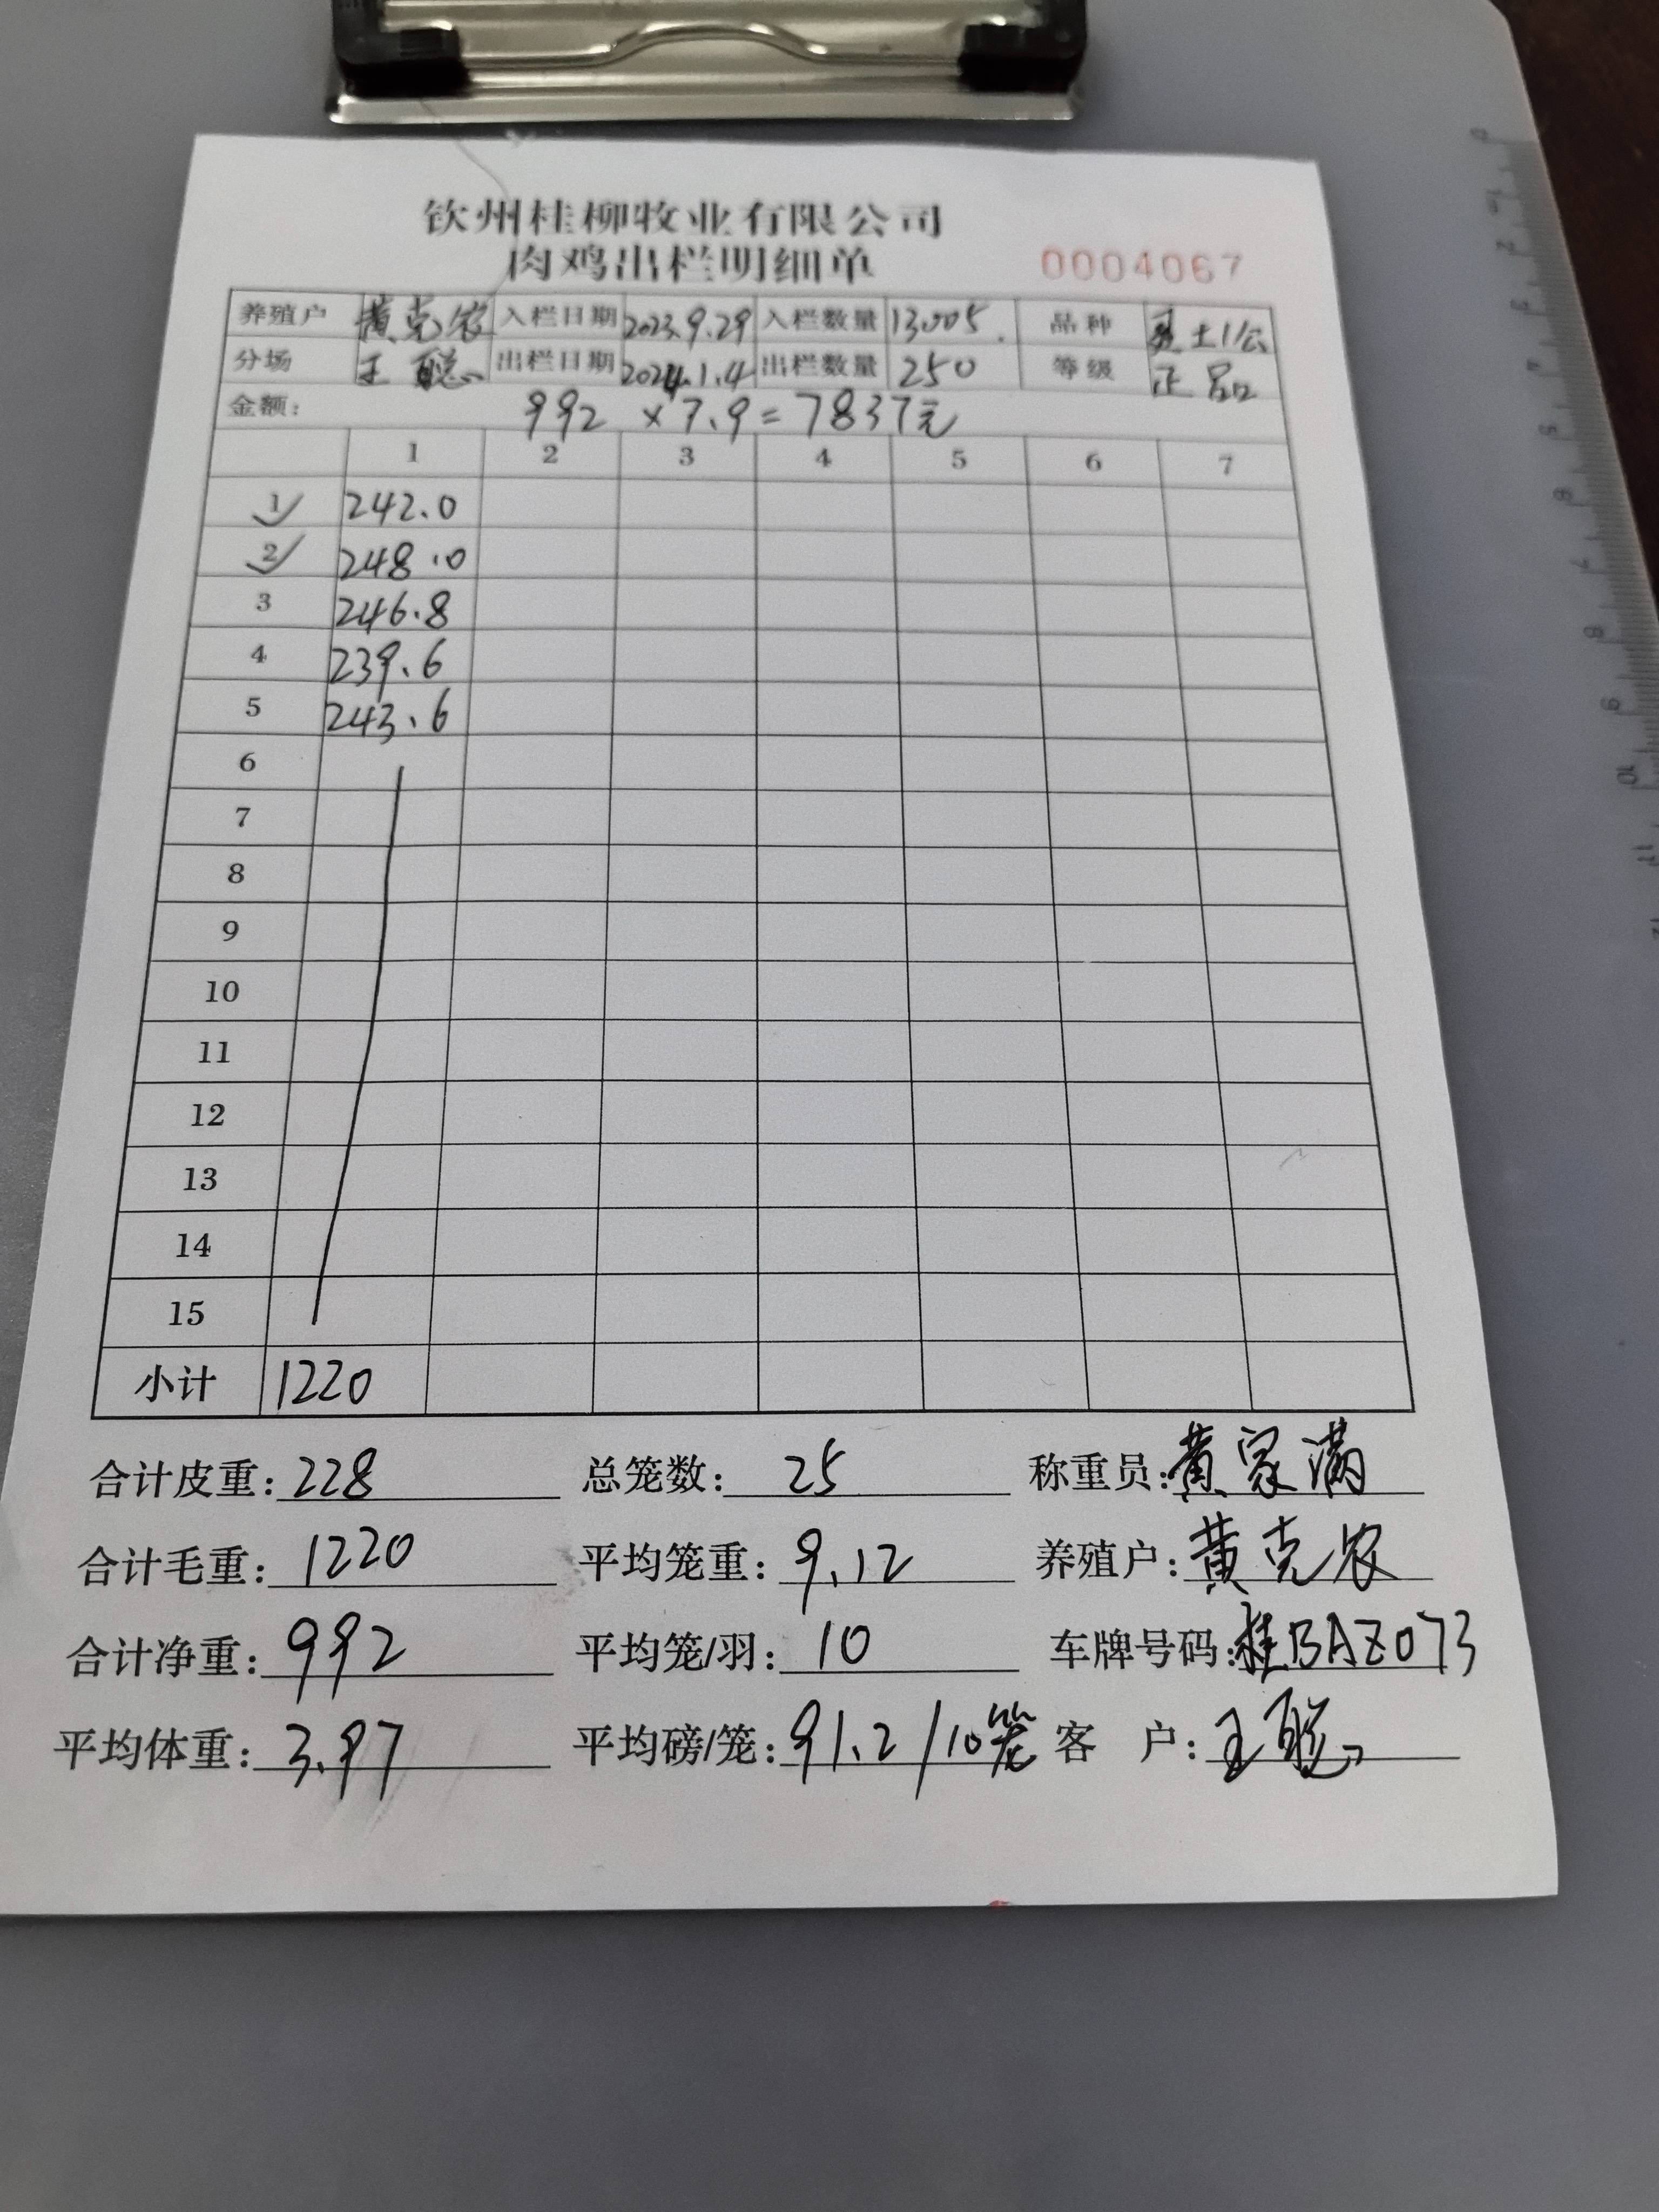 钦州桂柳牧业有限公司
肉鸡出栏明细单 0004067
养殖户 黄克农 入栏日期 2023.9.29 入栏数量 13005 品种 土1公
分场 王聪 出栏日期 2024.1.4 出栏数量 250 等级 正品
金额: 992 × 7.9 = 7837元
1 2 3 4 5 6 7
1 242.0
2 248.0
3 246.8
4 239.6
5 243.6
6
7
8
9
10
11
12
13
14
15
小计 1220
合计皮重: 228 总笼数: 25 称重员: 黄家满
合计毛重: 1220 平均笼重: 9.12 养殖户: 黄克农
合计净重: 992 平均笼/羽: 10 车牌号码: 桂BAZ073
平均体重: 3.97 平均磅/笼: 91.2/10笼 客 户: 王聪
0 1 2 3 4 5 6 7 8 9 10 11 12